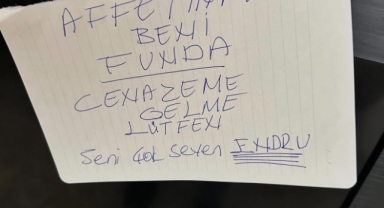 AFFETME
BENİ
FUNDA
CENAZEME
GELME
LÜTFEN
Seni çok seven ENDRU